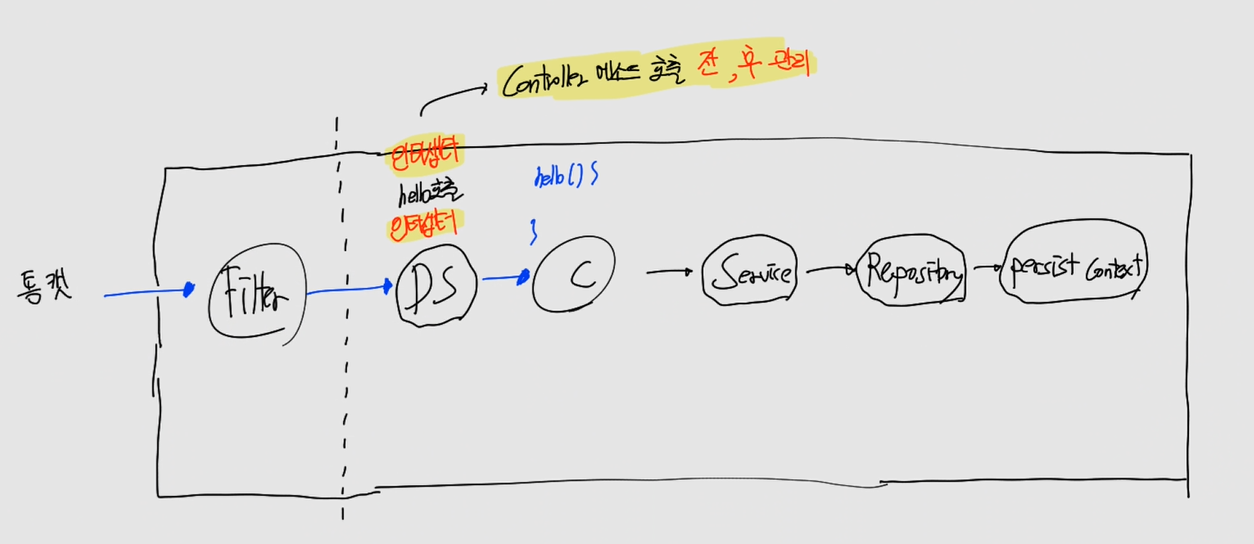 Controller 메소드 호출 전, 후 관리
인터셉터
hello호출
인터셉터
hello() {
}
톰캣
Filter
DS
C
Service
Repository
persist Context